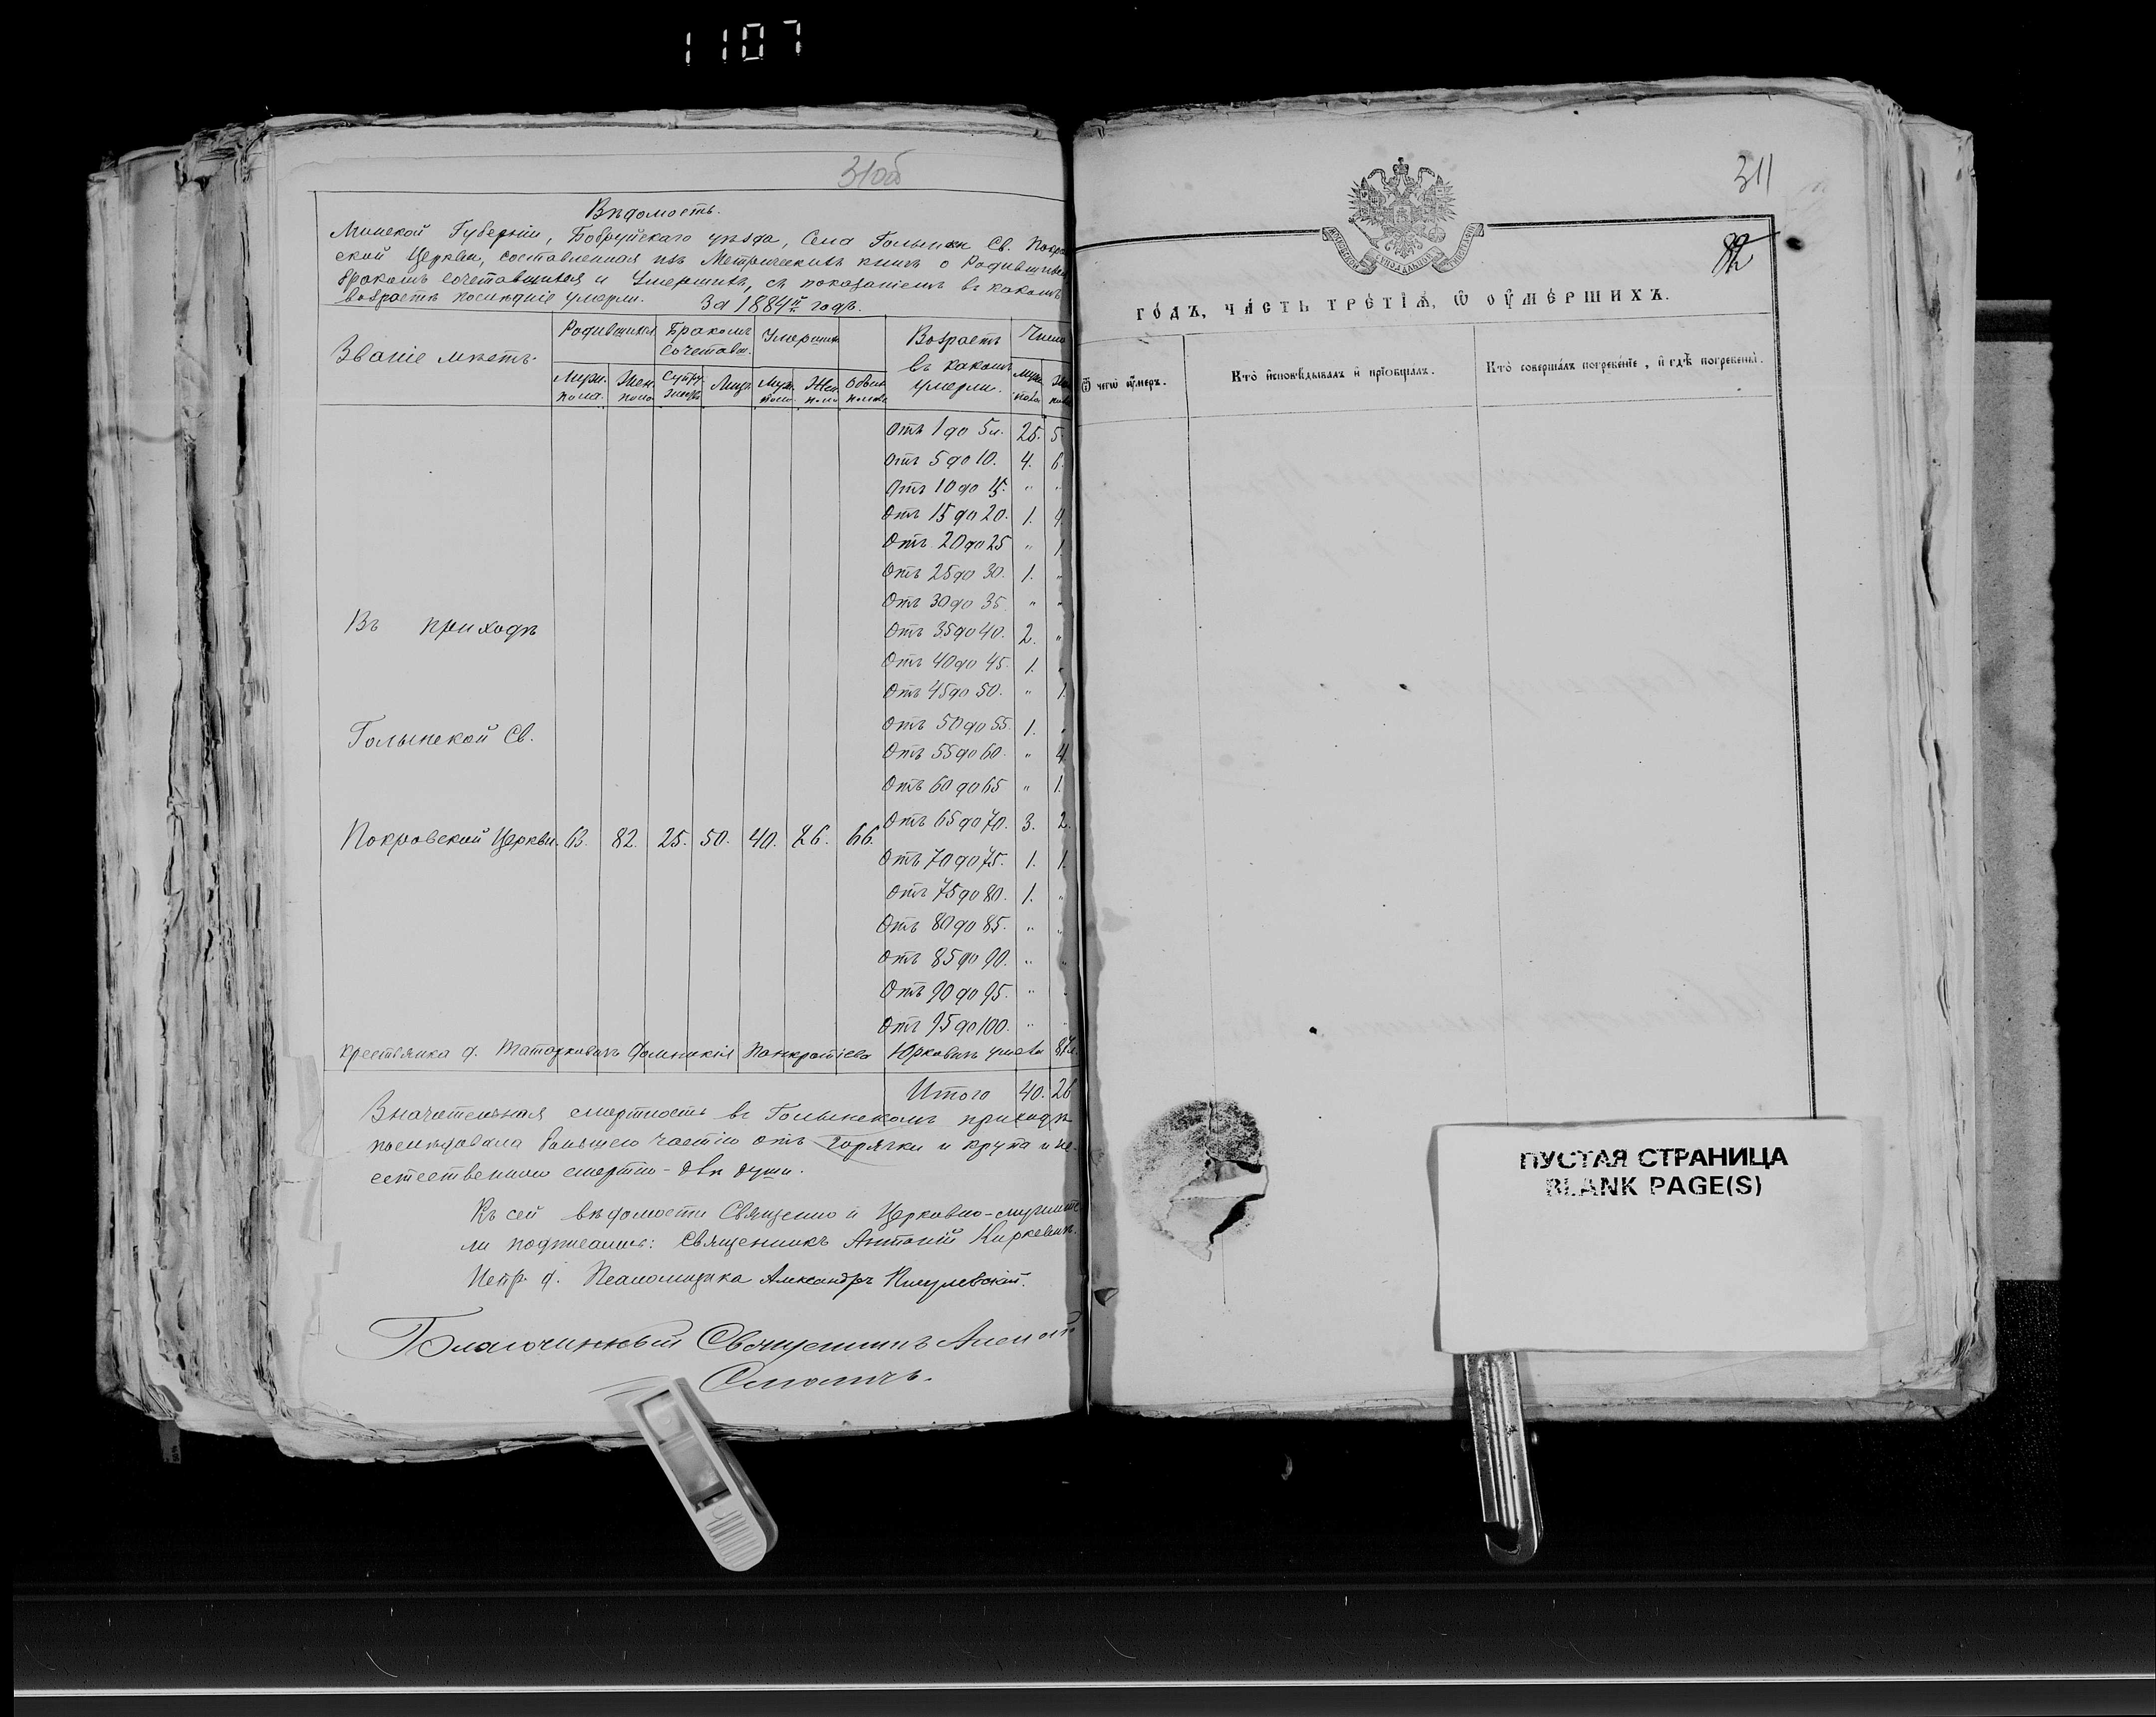 1107
310б
Вѣдомость.
Минской Губерніи, Бобруйскаго уѣзда, Села Голынки Св. Покров
ской Церкви, составленная изъ Метрическихъ книгъ о Родившихся
бракомъ сочетавшихся и Умершихъ, съ показаніемъ въ какомъ
возрастѣ послѣдніе умерли. За 1884й годъ.
Званіе мѣстъ. Родившихся Бракомъ сочетавш. Умершихъ Возрастъ въ какомъ умерли. Число
Муж. пола. Жен. пола Супру Лицъ Муж. пола Жен. пола Обоихъ Муж. пола Жен.
Отъ 1 до 5 л. 25. 5.
Отъ 5 до 10. 4. 6.
Отъ 10 до 15. " "
Отъ 15 до 20. 1. 4.
Отъ 20 до 25 " 1.
Отъ 25 до 30. 1. "
Отъ 30 до 35. " "
Въ приходѣ Отъ 35 до 40. 2. "
Отъ 40 до 45. 1. "
Отъ 45 до 50. " 1.
Голынской Св. Отъ 50 до 55. 1. "
Отъ 55 до 60. " 4.
Отъ 60 до 65 " 1.
Отъ 65 до 70. 3. 2.
Покровской Церкви. 63. 82. 25. 50. 40. 26. 66.
Отъ 70 до 75. 1. 1.
Отъ 75 до 80. 1. "
Отъ 80 до 85. " "
Отъ 85 до 90. " "
Отъ 90 до 95. " "
Отъ 95 до 100. " "
крестьянка д. Панкратіева Юрковичъ 87 л.
Итого 40. 26
Значительная смертность въ Голынскомъ приходѣ
послѣдовала большею частію отъ горячки и крупа и не
естественною смертію - двѣ души.
Къ сей вѣдомости Священно и Церковно-служите
ли подписались: Священникъ Антоній Киркевичъ.
Испр. д. Псаломщика Александръ
Благочинный Священникъ Алексѣй
Смоличъ.
311
82
МОСКОВСКОЙ СѴНОДАЛЬНОЙ ТИПОГРАФІИ
ГО́ДЪ, ЧА́СТЬ ТРЕ́ТІѦ, Ѡ ОУ҆МЕ́РШИХЪ.
Ѿ чегѡ̀ оу҆́меръ. Кто̀ и҆сповѣ́дывалъ и҆ прїѡбща́лъ. Кто̀ соверша́лъ погребе́нїе, и҆ гдѣ̀ погребены̀.
ПУСТАЯ СТРАНИЦА
BLANK PAGE(S)